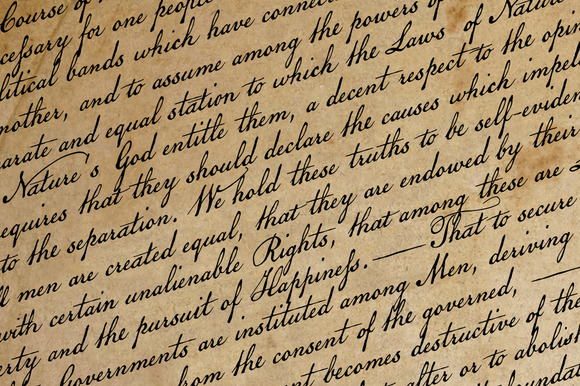 Course of
ceſsary for one people
litical bands which have connec
nother, and to assume among the powers of
arate and equal station to which the Laws of Nature
Nature's God entitle them, a decent respect to the opin
equires that they should declare the causes which impel
to the separation. We hold these truths to be self-eviden
ll men are created equal, that they are endowed by their
with certain unalienable Rights, that among these are L
erty and the pursuit of Happineſs. — That to secure
Governments are instituted among Men, deriving
rom the consent of the governed, —
nt becomes destructive of the
alter or to abolish
foundat